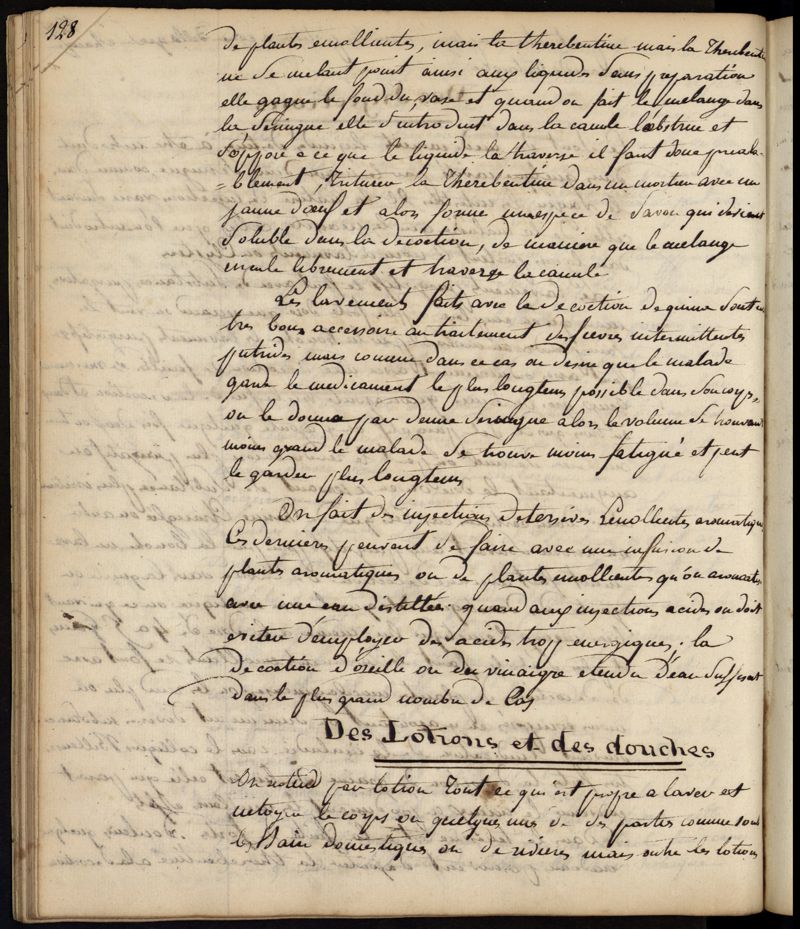 128
de plantes emollientes, mais la therebentine mais la Therebenti
ne se melant point ainsi aux liquides sans preparation
elle gagne le fond du vase et quand on fait le melange dans
la seringue elle s'introduit dans la canule l'obstrue et
s'oppose a ce que le liquide la traverse il faut donc preala-
=blement, triturer la Therebentine dans un mortier avec un
jaune d'œuf et alors forme une espece de savon qui devient
soluble dans la decoction, de maniere que le melange
circule librement et traverse la canule
Les lavements faits avec la decoction de quina sont un
tres bon accessoire au traitement des fievres intermittentes
putrides mais comme dans ce cas on desire que le malade
garde le medicament le plus longtems possible dans son corps,
on le donne par demie seringue alors le volume se trouvant
moins grand le malade se trouve moins fatigué et peut
le garder plus longtems
On fait des injections detersives Emollientes aromatiques
Ces dernieres peuvent se faire avec une infusion de
plantes aromatiques ou de plantes emollientes qu'on aromatise
avec une eau distillée quand aux injections acides on doit
eviter d'employer des acides trop energiques; la
decoction d'oseille ou du vinaigre etendu d'eau suffisent
dans le plus grand nombre de Cas
Des Lotions et des douches
On entend par lotion Tout ce qui est propre a laver et
netoyer le corps ou quelques unes de ses parties comme sont
les Bain domestiques ou de rivieres mais outre les lotions